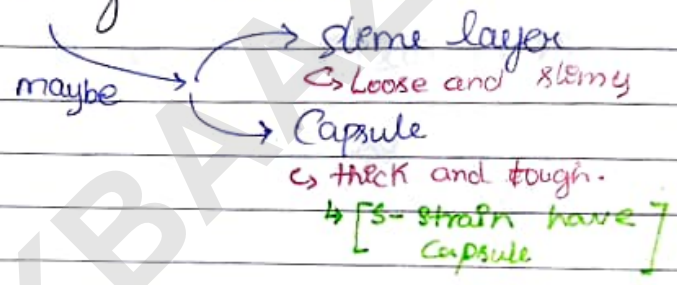 slime layer
maybe
↳ Loose and slimy
Capsule
↳ thick and tough.
↳ [S-strain have
Capsule]